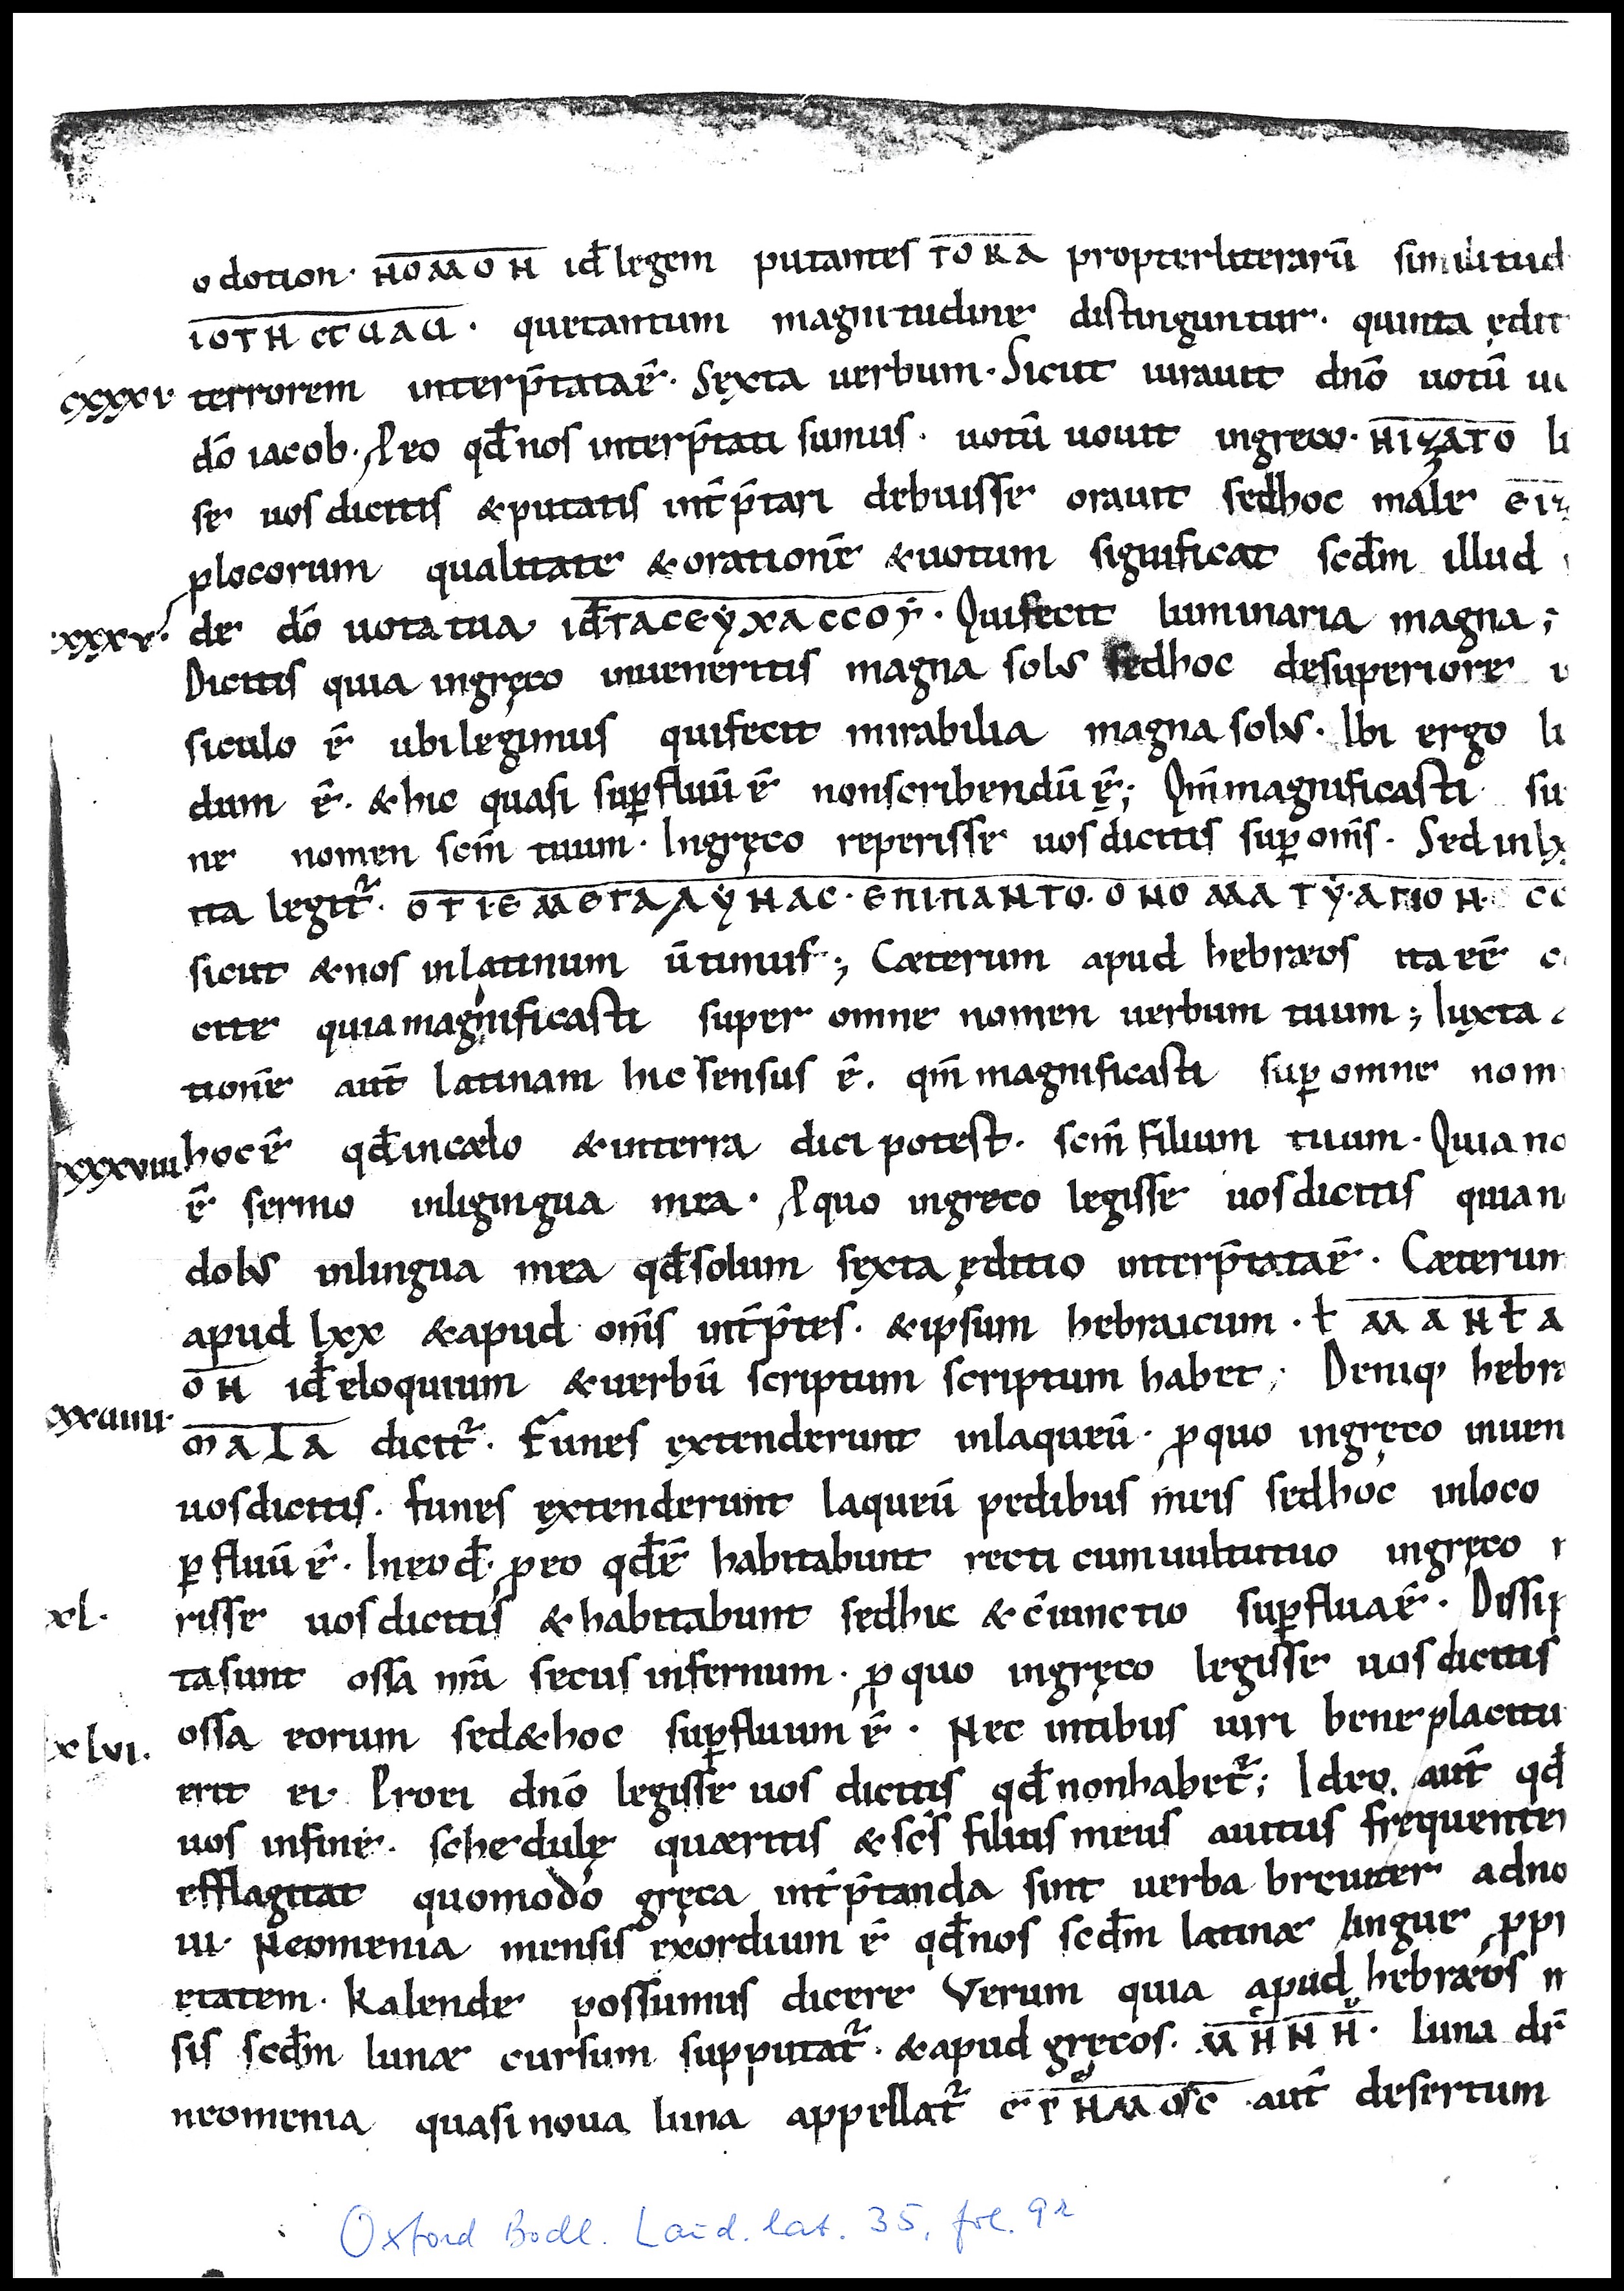 odotion· ΝΟΜΟΝ id̄ legem putantes ΤΟRΑ propter literarū similitud
ΙΟΤΗ et UAU· que tantum magnitudine distinguntur· quinta ędit
cxxxv terrorem interp̄tata ē· Sexta uerbum· Sicut iurauit dn̄o uotū
dō iacob· Pro qd̄ nos interp̄tati sumus· uotū uouit ingreco·
se uos dicitis & putatis int̄p̄tari debuisse orauit sed hoc male
plocorum qualitate & orationē & uotum significat scd̄m illud
cxxxv· de dō uota tua id̄ ΤΑC ΕΥΧΑC COY· Qui fecit luminaria magna;
Dicitis quia ingręco inueneritis magna solus sed hoc de superiore
siculo ē ubi legimus qui fecit mirabilia magna solus· Ibi ergo
dum ē· & hic quasi sup̱fluū ē non scribendū ē; Qm̄ magnificasti su
ne nomen scm̄ tuum· Ingręco reperisse uos dicitis sup̱ om̄s· Sed in
ita legit̄· ΟΤΙ ΕΜΕΓΑΛΥΝΑC· ΕΠΙ ΠΑΝ ΤΟ· ΟΝΟΜΑ ΤΥ· ΑΓΙΟΝ·
sicut & nos in latinum ūtimus; Cæterum apud hebræos ita eē
cite quia magnificasti super omne nomen uerbum tuum; Iuxta
tionē aut̄ latinam hic sensus ē. qm̄ magnificasti sup̱ omne nom
xxxviii hoc ē qd̄ in cælo & in terra dici potest· scm̄ filium tuum· Quia no
ē sermo in ligingua mea· P quo ingreco legisse uos dicitis quia n
dolus in lingua mea qd̄ solum sexta ęditio interp̄tata ē· Cæterum
apud lxx & apud om̄s int̄p̄tes· & ipsum hebraicum· t ΜΑΝtΑ
ΟΝ id̄ eloquium & uerbū scriptum scriptum habet; Deniq; hebr
cxxuiiii· ΜΑLΑ dicit̄· Funes extenderunt in laqueū· p quo ingręco inuen
uos dicitis· funes extenderunt laqueū pedibus meis sed hoc in loco
p̱fluū ē· In eod̄· p eo qd̄ ē habitabunt recti cum uultu tuo ingręco
xl· risse uos dicitis & habitabunt sed hic & c̄iunctio sup̱flua ē· Dissip
ta sunt ossa nr̄a secus infernum· p quo ingręco legisse uos dicitis
xlvi· ossa eorum sed & hoc sup̱fluum ē· Nec in tibus uiri bene placitu
erit ei· Pro ei dn̄o legisse uos dicitis qd̄ non habet̄; Ideo aut̄ qd̄
uos in fine· schedulę quæritis & scs̄ filius meus auitus frequenter
efflagitat quomodo gręca int̄p̄tanda sint uerba breuiter adno
ui· Neomenia mensis exordium ē qd̄ nos scd̄m latinæ lingue ppi
etatem· Kalende possumus dicere Verum quia apud hebræos
sis scd̄m lunæ cursum supputat̄· & apud gręcos· ΜΗΝΗ· luna dr̄
neomenia quasi nova luna appellat̄ ΕΡΗΜΟC aut̄ desertum
Oxford Bodl. Laud. lat. 35, fol. 9r